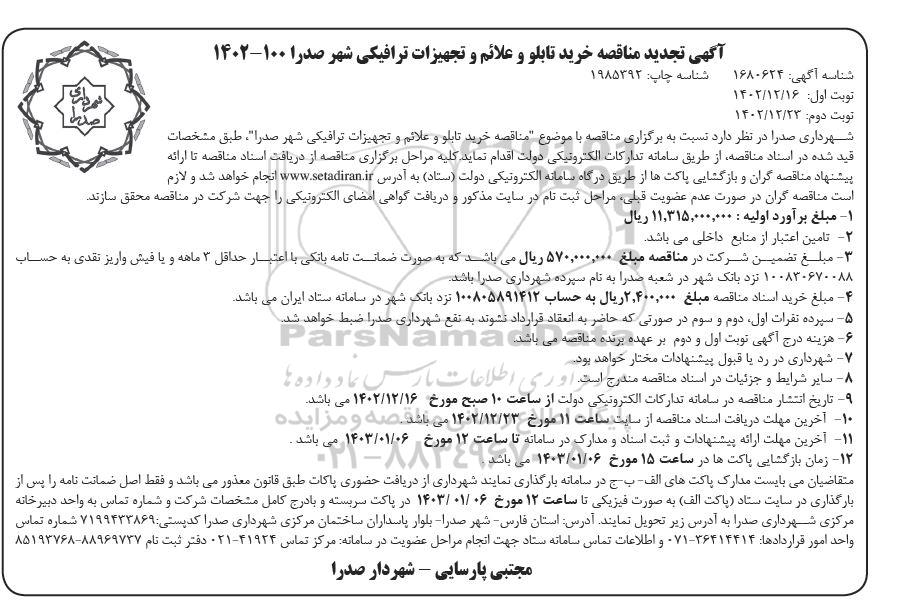 آگهی تجدید مناقصه خرید تابلو و علائم و تجهیزات ترافیکی شهر صدرا ۱۰۰-۱۴۰۲
شهرداری صدرا
شناسه آگهی: ۱۶۸۰۶۲۴ شناسه چاپ: ۱۹۸۵۳۹۲
نوبت اول: ۱۴۰۲/۱۲/۱۶
نوبت دوم: ۱۴۰۲/۱۲/۲۳
شـــهرداری صدرا در نظر دارد نسبت به برگزاری مناقصه با موضوع "مناقصه خرید تابلو و علائم و تجهیزات ترافیکی شهر صدرا"، طبق مشخصات
قید شده در اسناد مناقصه، از طریق سامانه تدارکات الکترونیکی دولت اقدام نماید.کلیه مراحل برگزاری مناقصه از دریافت اسناد مناقصه تا ارائه
پیشنهاد مناقصه گران و بازگشایی پاکت ها از طریق درگاه سامانه الکترونیکی دولت (ستاد) به آدرس www.setadiran.ir انجام خواهد شد و لازم
است مناقصه گران در صورت عدم عضویت قبلی، مراحل ثبت نام در سایت مذکور و دریافت گواهی امضای الکترونیکی را جهت شرکت در مناقصه محقق سازند.
۱- مبلغ برآورد اولیه : ۱۱,۳۱۵,۰۰۰,۰۰۰ ریال
۲- تامین اعتبار از منابع داخلی می باشد.
۳- مبلـــغ تضمیـــن شـــرکت در مناقصه مبلغ ۵۷۰,۰۰۰,۰۰۰ ریال می باشـــد که به صورت ضمانـــت نامه بانکی با اعتبـــار حداقل ۳ ماهه و یا فیش واریز نقدی به حســـاب
۱۰۰۸۳۰۶۷۰۰۸۸ نزد بانک شهر در شعبه صدرا به نام سپرده شهرداری صدرا باشد.
۴- مبلغ خرید اسناد مناقصه مبلغ ۲,۴۰۰,۰۰۰ریال به حساب ۱۰۰۸۰۵۸۹۱۴۱۲ نزد بانک شهر در سامانه ستاد ایران می باشد.
۵- سپرده نفرات اول، دوم و سوم در صورتی که حاضر به انعقاد قرارداد نشوند به نفع شهرداری صدرا ضبط خواهد شد.
ParsNamadData
۶- هزینه درج آگهی نوبت اول و دوم بر عهده برنده مناقصه می باشد.
۷- شهرداری در رد یا قبول پیشنهادات مختار خواهد بود.
مرکز فرآوری اطلاعات پارس نماد داده ها
۸- سایر شرایط و جزئیات در اسناد مناقصه مندرج است.
۹- تاریخ انتشار مناقصه در سامانه تدارکات الکترونیکی دولت از ساعت ۱۰ صبح مورخ ۱۴۰۲/۱۲/۱۶ می باشد.
پایگاه اطلاع رسانی مناقصه و مزایده
۱۰- آخرین مهلت دریافت اسناد مناقصه از سایت ساعت ۱۱ مورخ ۱۴۰۲/۱۲/۲۳ می باشد .
۱۱- آخرین مهلت ارائه پیشنهادات و ثبت اسناد و مدارک در سامانه تا ساعت ۱۲ مورخ ۱۴۰۳/۰۱/۰۶ می باشد .
۰۲۱-۸۸۳۴۹۶۷۰-۵
۱۲- زمان بازگشایی پاکت ها در ساعت ۱۵ مورخ ۱۴۰۳/۰۱/۰۶ می باشد .
متقاضیان می بایست مدارک پاکت های الف- ب-ج در سامانه بارگذاری نمایند شهرداری از دریافت حضوری پاکات طبق قانون معذور می باشد و فقط اصل ضمانت نامه را پس از
بارگذاری در سایت ستاد (پاکت الف) به صورت فیزیکی تا ساعت ۱۲ مورخ ۱۴۰۳/۰۱/۰۶ در پاکت سربسته و بادرج کامل مشخصات شرکت و شماره تماس به واحد دبیرخانه
مرکزی شـــهرداری صدرا به آدرس زیر تحویل نمایند. آدرس: استان فارس- شهر صدرا- بلوار پاسداران ساختمان مرکزی شهرداری صدرا کدپستی:۷۱۹۹۴۳۳۸۶۹ شماره تماس
واحد امور قراردادها: ۳۶۴۱۴۴۱۴-۰۷۱ و اطلاعات تماس سامانه ستاد جهت انجام مراحل عضویت در سامانه: مرکز تماس ۴۱۹۲۴-۰۲۱ دفتر ثبت نام ۸۸۹۶۹۷۳۷-۸۵۱۹۳۷۶۸
مجتبی پارسایی – شهردار صدرا